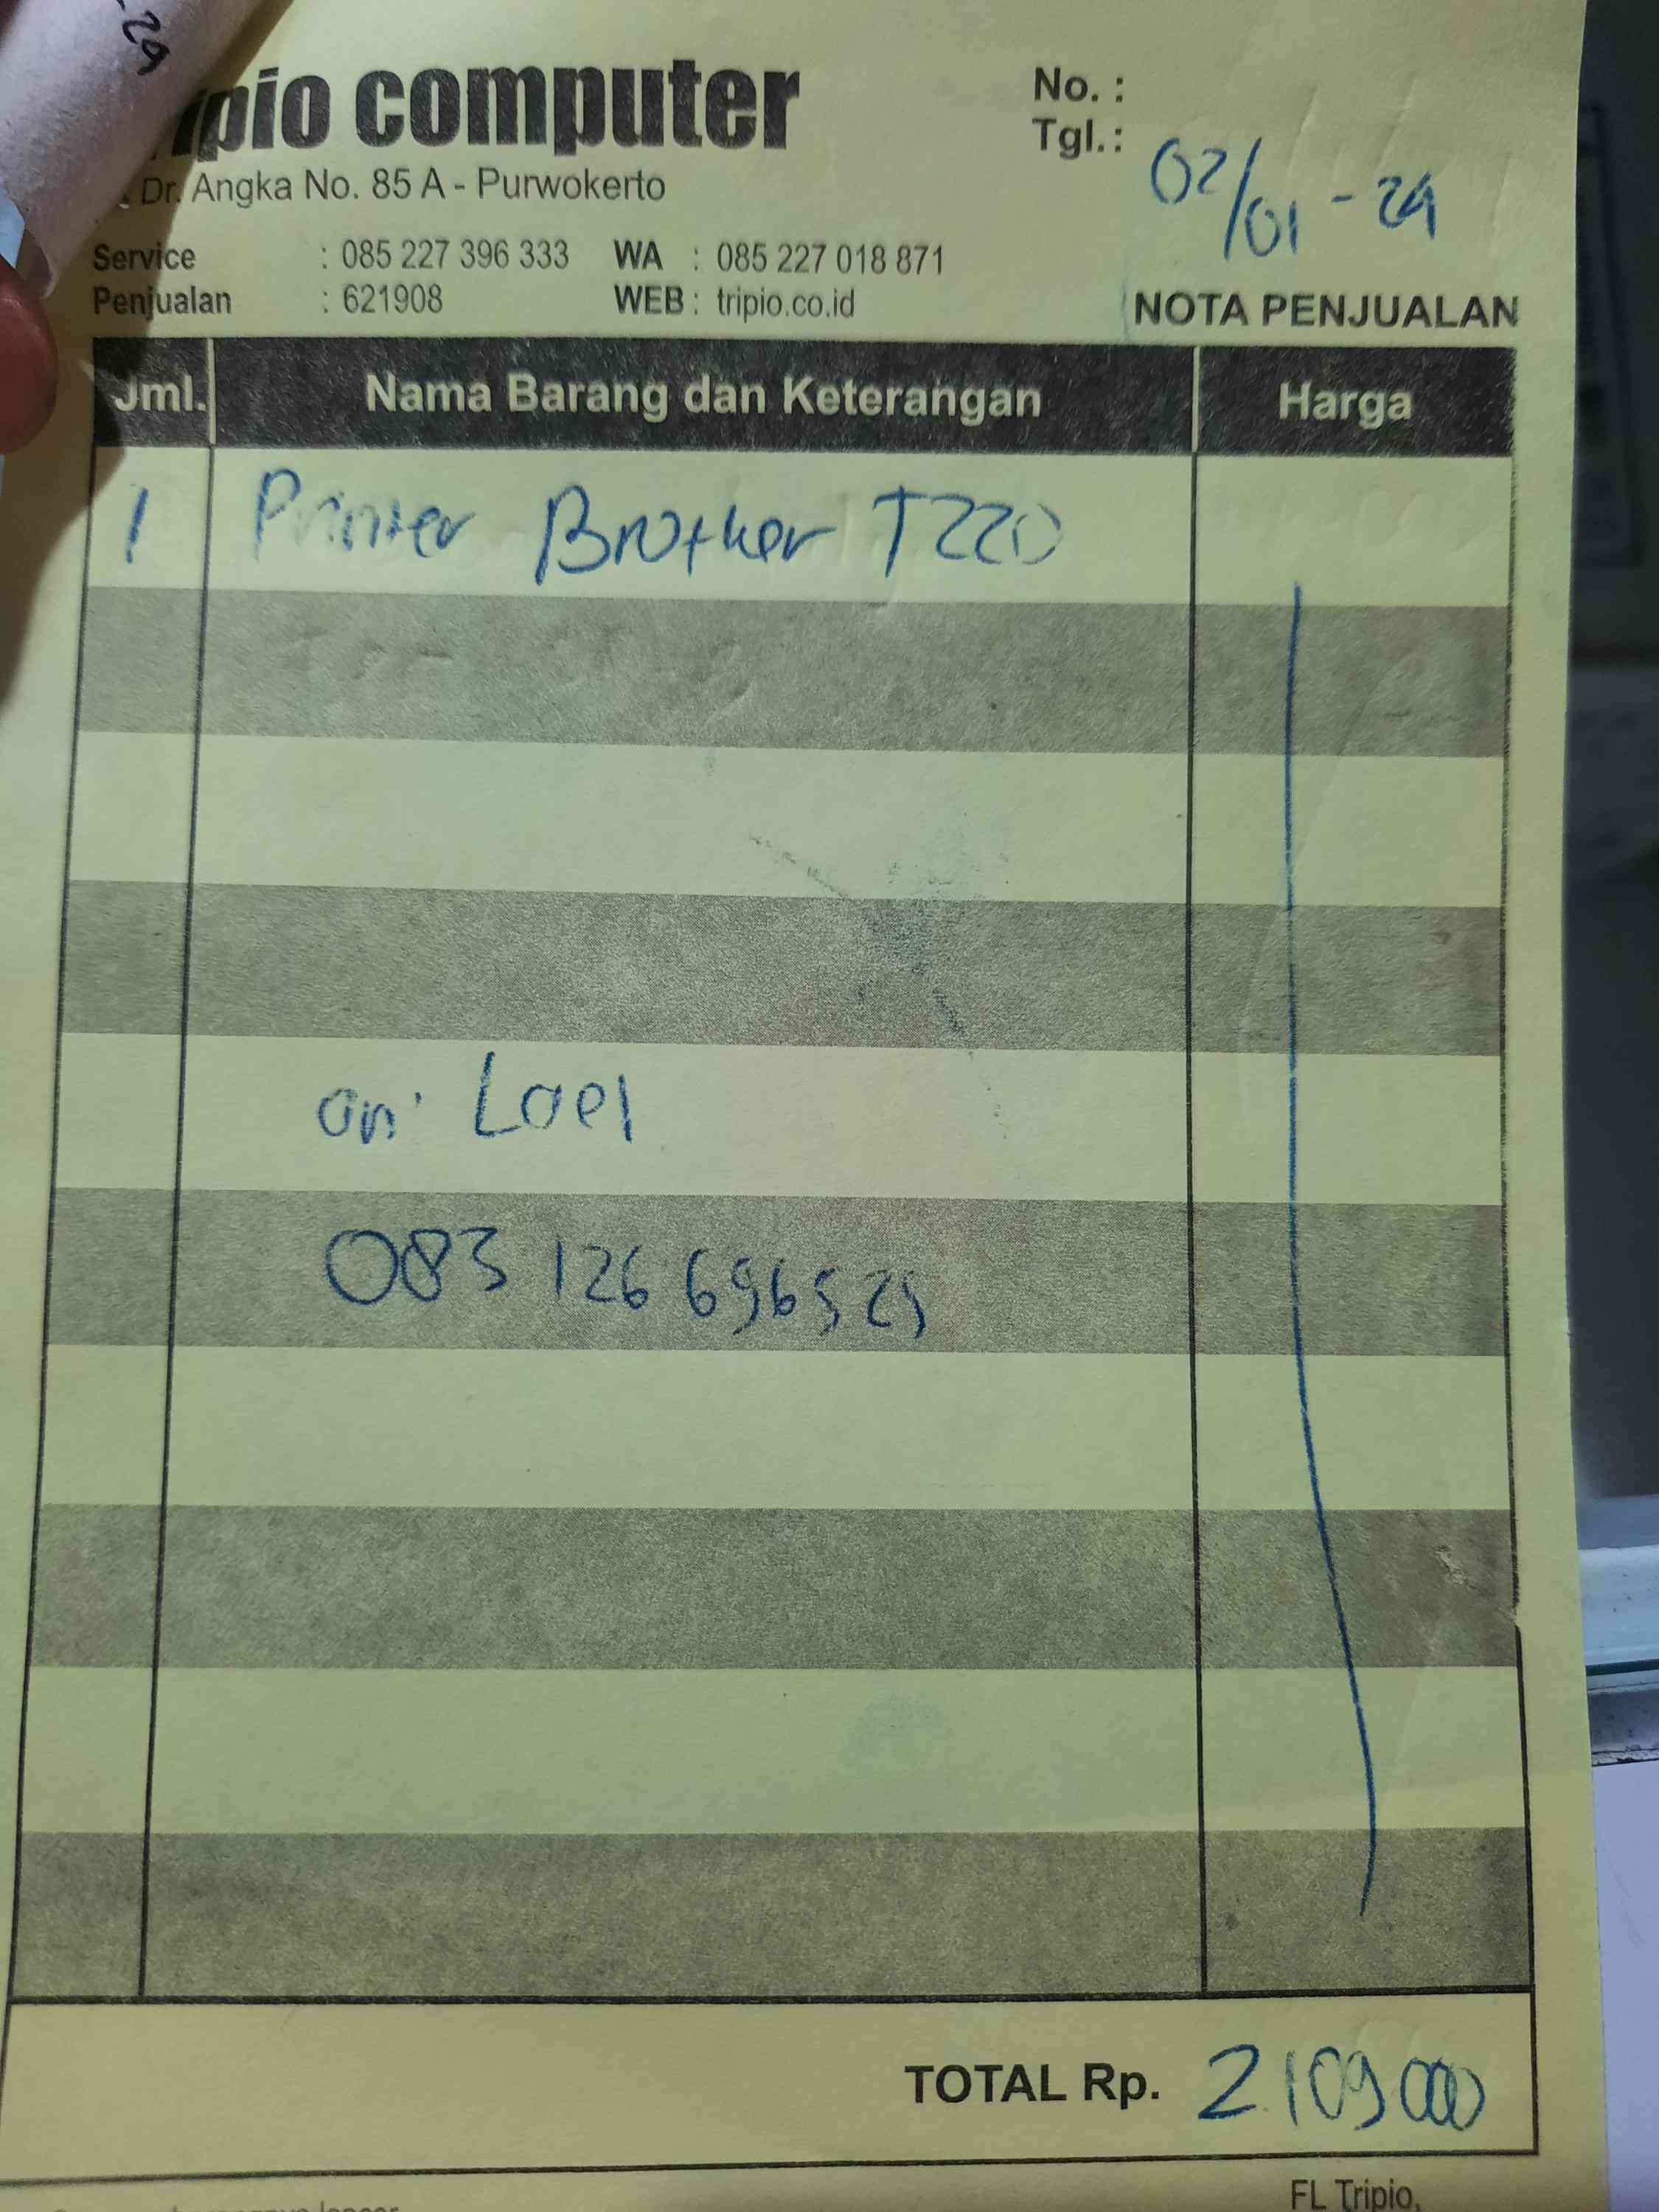 ripio computer
Dr. Angka No. 85 A - Purwokerto
Service : 085 227 396 333 WA : 085 227 018 871
Penjualan : 621908 WEB : tripio.co.id
No. :
Tgl.: 02/01 - 24
NOTA PENJUALAN
Jml. Nama Barang dan Keterangan Harga
1 Printer Brother T220
an. Loel
083 126 696529
TOTAL Rp. 2.109000
FL Tripio,